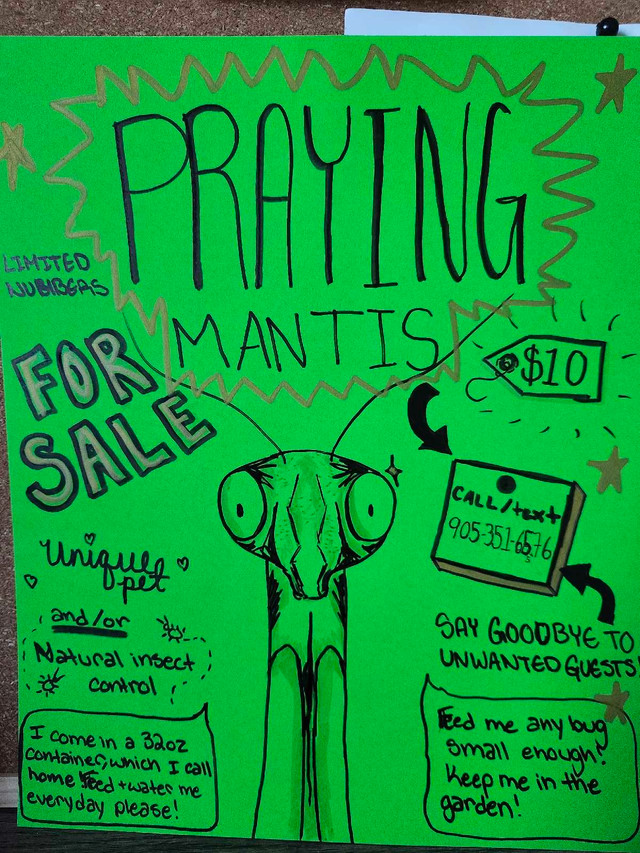 PRAYING
MANTIS
LIMITED
NUBIBERS
FOR
SALE
$10
CALL/text
905-351-6576
SAY GOODBYE TO
UNWANTED GUESTS!
Unique
pet
and/or
Natural insect
control
I come in a 32oz
container, which I call
home. Feed + water me
everyday please!
Feed me any bug
small enough!
Keep me in the
garden!